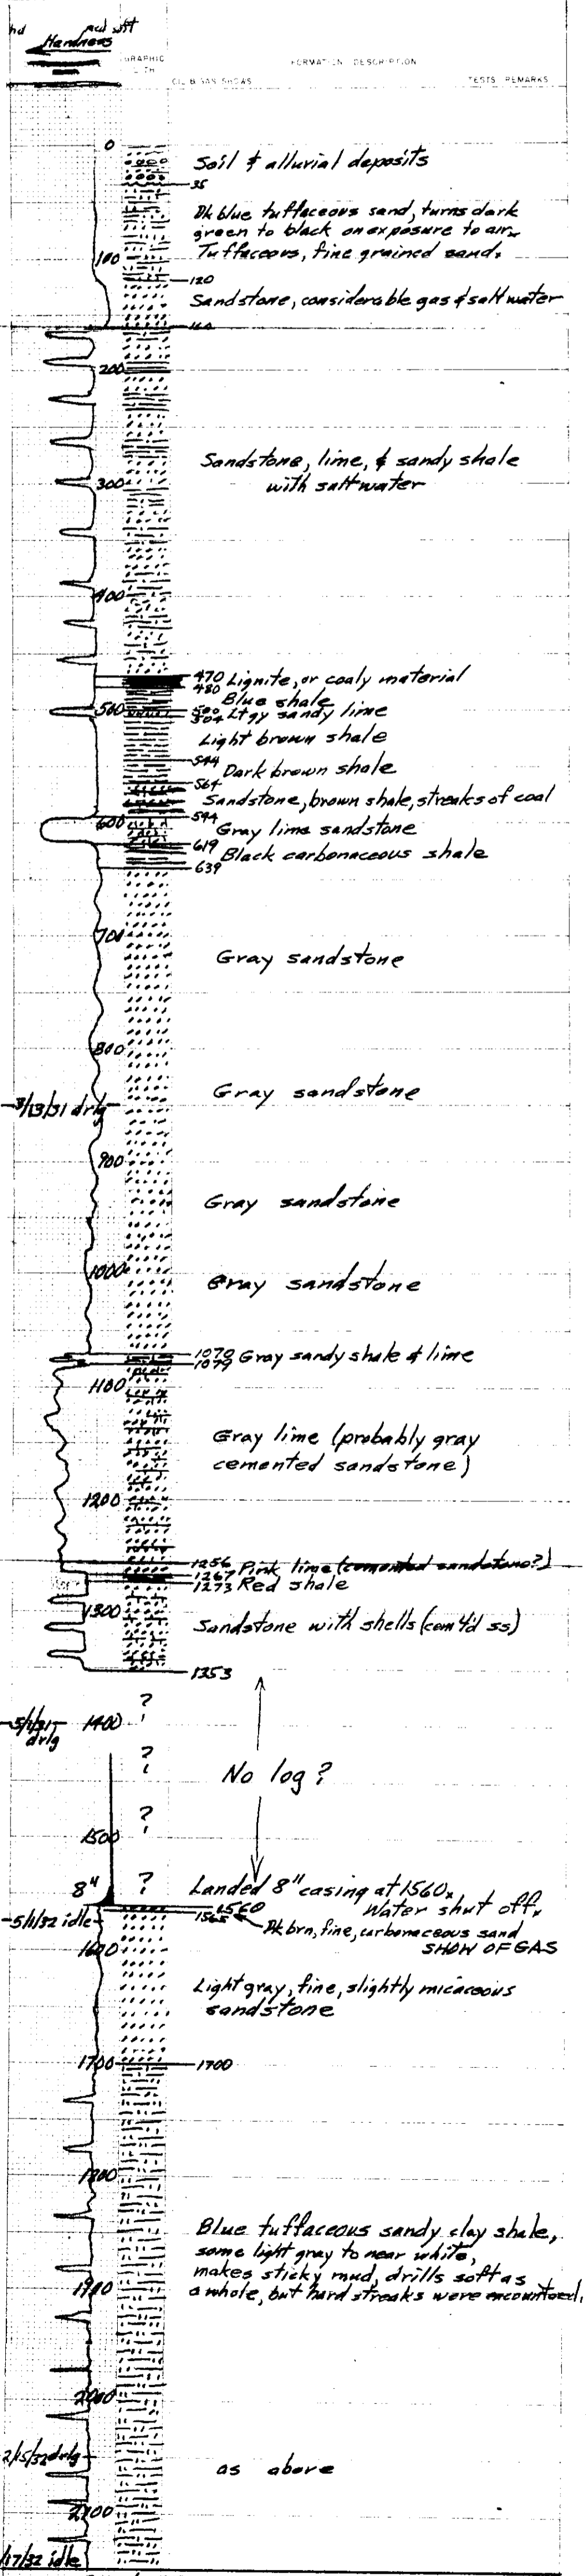 hd med soft
Hardness
GRAPHIC
LITH
OIL & GAS SHOWS
FORMATION DESCRIPTION
TESTS, REMARKS
0
Soil & alluvial deposits
35
Dk blue tuffaceous sand, turns dark
green to black on exposure to air.
Tuffaceous, fine grained sand.
100
120
Sandstone, considerable gas & salt water
160
200
Sandstone, lime, & sandy shale
with saltwater
300
400
470 Lignite, or coaly material
480
Blue shale
500
500 Ltgy sandy lime
504
Light brown shale
544
Dark brown shale
564
Sandstone, brown shale, streaks of coal
594
600
Gray lime sandstone
619
Black carbonaceous shale
639
700
Gray sandstone
800
3/13/31 drlg
Gray sandstone
900
Gray sandstone
1000
Gray sandstone
1070 Gray sandy shale & lime
1079
1100
Gray lime (probably gray
cemented sandstone)
1200
1256 Pink lime (cemented sandstone?)
1267
1273 Red shale
1300
Sandstone with shells (cem't'd ss)
1353
?
5/1/31 1400 ?
drlg
?
?
No log?
?
?
1500
8" ? Landed 8" casing at 1560.
Water shut off.
1560
5/1/32 idle
1565
Dk brn, fine, carbonaceous sand
SHOW OF GAS
1600
Light gray, fine, slightly micaceous
sandstone
1700 1700
1800
Blue tuffaceous sandy clay shale,
some light gray to near white,
makes sticky mud, drills soft as
a whole, but hard streaks were encountered.
1900
2000
2/15/32 drlg
as above
2100
/17/32 idle